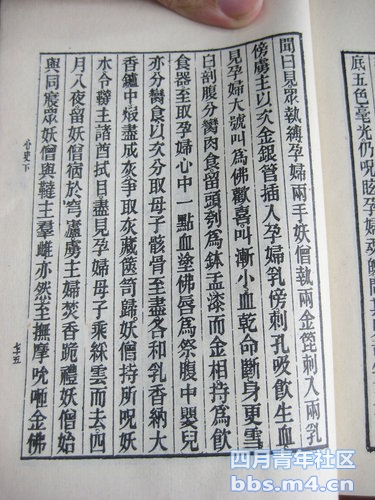 底五色毫光仍呪眩孕婦
聞曰見眾執縛孕婦兩手妖僧執兩金篦刺入兩乳
傍虜主以次金銀管插入孕婦乳傍刺孔吸飲生血
見孕婦大號叫爲佛歡喜叫漸小血乾命斷身更雪
白剖腹分臠肉食留頭刳爲鉢盂漆而金相持爲飲
食器至取孕婦心中一點血塗佛唇爲祭腹中嬰兒
亦分臠食以次分取母子骸骨至盡各和乳香納大
香鑪中煅盡成灰爭取灰藏篋笥歸妖僧持所呪妖
水令韃主諸酋拭目盡見孕婦母子乘綵雲而去四
月八夜留妖僧宿於穹廬虜主婦焚香跪禮妖僧始
與同寢眾妖僧與韃主羣雌亦然至撫摩吮咂金佛
心史下
七五
四月青年社区
bbs.m4.cn